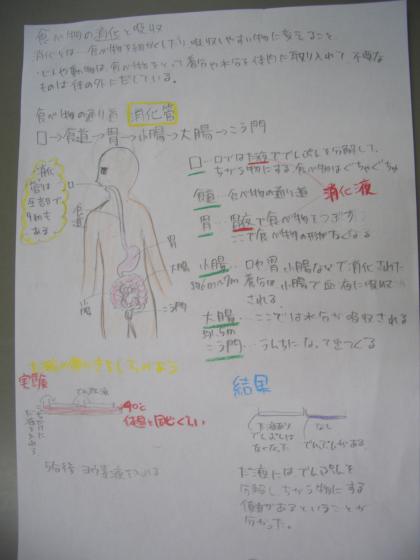 食べ物の消化と吸収
消化とは…食べ物を細かくしたり、吸収しやすい物に変えること
人や動物は、食べ物をとって養分や水分を体内に取り入れて不要な
ものは体の外にだしている。
食べ物の通り道 消化管
口→食道→胃→小腸→大腸→こう門
消化
管は
全部で
9mも
ある
口
食道
胃
大腸
小腸
こう門
口…口ではだ液ででんぷんを分解して、
ちがう物にする。食べ物はぐちゃぐちゃ
食道…食べ物の通り道
消化液
胃…胃液で食べ物をつぶす
ここで食べ物の形がなくなる
小腸…口や胃、小腸などで消化された
約6m〜7m 養分は小腸で血液に吸収
される。
大腸…ここでは水分が吸収される
約1.5m
こう門…うんちになってでてくる
実験
でんぷん液
40℃
体温と同じくらい
5分後 ヨウ素液を入れる
結果
だ液あり
でんぷんは
なかった。
なし
でんぷんがある。
だ液にはでんぷんを
分解しちがう物にする
働きがあるということが
分かった。